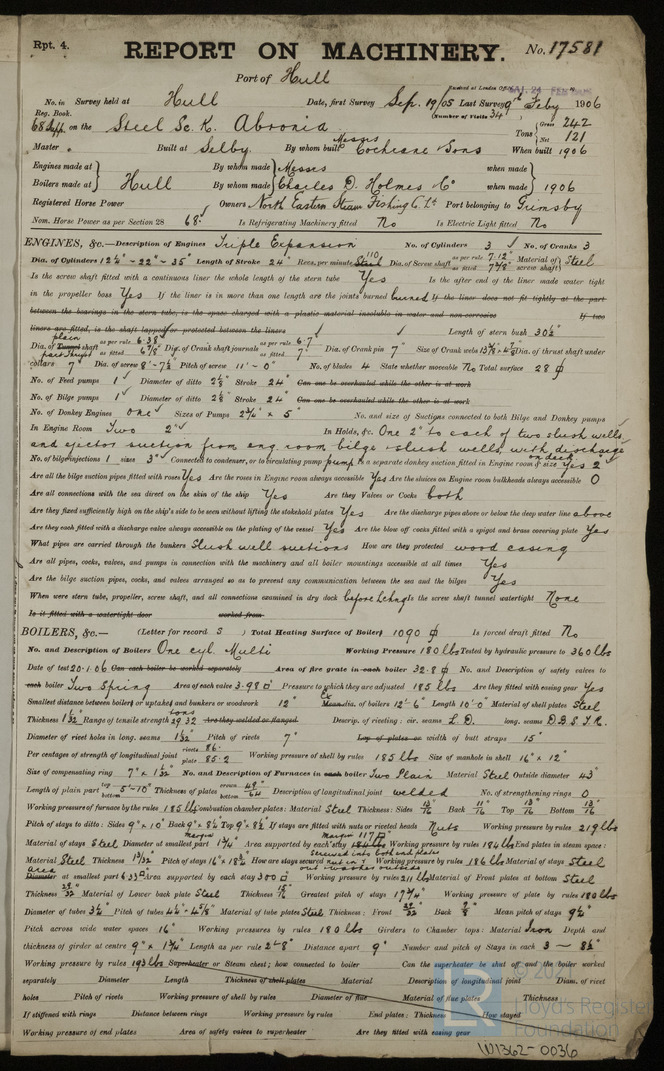 Rpt. 4.
REPORT ON MACHINERY. No. 17581
Port of Hull
Received at London Office SAT. 24 FEB 1906
No. in Survey held at Hull Date, first Survey Sep. 19/05 Last Survey 9th Feby 1906
Reg. Book. (Number of Visits 34)
68 Supp. on the Steel Sc. K. Abronia Tons { Gross 242 Net 121
Master Built at Selby By whom built Messrs Cochrane & Sons When built 1906
Engines made at } Hull By whom made } Messrs when made } 1906
Boilers made at } By whom made } Charles D. Holmes & Co when made }
Registered Horse Power Owners North Eastern Steam Fishing Co Ld Port belonging to Grimsby
Nom. Horse Power as per Section 28 68 Is Refrigerating Machinery fitted No Is Electric Light fitted No
ENGINES, &c.—Description of Engines Triple Expansion No. of Cylinders 3 No. of Cranks 3
Dia. of Cylinders 12½" - 22" - 35" Length of Stroke 24" Revs. per minute 110 Dia. of Screw shaft as per rule 7.12" as fitted 7⅜" Material of screw shaft } Steel
Is the screw shaft fitted with a continuous liner the whole length of the stern tube Yes Is the after end of the liner made water tight
in the propeller boss Yes If the liner is in more than one length are the joints burned burned If the liner does not fit tightly at the part
between the bearings in the stern tube, is the space charged with a plastic material insoluble in water and non-corrosive If two
liners are fitted, is the shaft lapped or protected between the liners Length of stern bush 30½"
Dia. of Tunnel plain shaft as per rule 6.38" as fitted 6⅞" Dia. of Crank shaft journals as per rule 6.7" as fitted 7" Dia. of Crank pin 7" Size of Crank webs 13⅝" x 4⅞" Dia. of thrust shaft under
collars 7" Dia. of screw 8'-7½" Pitch of screw 11'-0" No. of blades 4 State whether moveable No Total surface 28
No. of Feed pumps 1 Diameter of ditto 2⅝" Stroke 24" Can one be overhauled while the other is at work
No. of Bilge pumps 1 Diameter of ditto 2⅝" Stroke 24" Can one be overhauled while the other is at work
No. of Donkey Engines One Sizes of Pumps 2¾" x 5" No. and size of Suctions connected to both Bilge and Donkey pumps
In Engine Room Two 2" In Holds, &c. One 2" to each of two slush wells,
and ejector suction from eng. room bilge & slush wells, with discharge on deck
No. of bilge injections 1 sizes 3" Connected to condenser, or to circulating pump pump Is a separate donkey suction fitted in Engine room & size Yes 2
Are all the bilge suction pipes fitted with roses Yes Are the roses in Engine room always accessible Yes Are the sluices on Engine room bulkheads always accessible 0
Are all connections with the sea direct on the skin of the ship Yes Are they Valves or Cocks both
Are they fixed sufficiently high on the ship's side to be seen without lifting the stokehold plates Yes Are the discharge pipes above or below the deep water line above
Are they each fitted with a discharge valve always accessible on the plating of the vessel Yes Are the blow off cocks fitted with a spigot and brass covering plate Yes
What pipes are carried through the bunkers Slush well suctions How are they protected wood casing
Are all pipes, cocks, valves, and pumps in connection with the machinery and all boiler mountings accessible at all times Yes
Are the bilge suction pipes, cocks, and valves arranged so as to prevent any communication between the sea and the bilges Yes
When were stern tube, propeller, screw shaft, and all connections examined in dry dock before Lchng Is the screw shaft tunnel watertight None
Is it fitted with a watertight door worked from
BOILERS, &c.— (Letter for record S) Total Heating Surface of Boilers 1090 Is forced draft fitted No
No. and Description of Boilers One cyl. Multi Working Pressure 180 lbs Tested by hydraulic pressure to 360 lbs
Date of test 20.1.06 Can each boiler be worked separately Area of fire grate in each boiler 32.8 No. and Description of safety valves to
each boiler Two Spring Area of each valve 3.98 Pressure to which they are adjusted 185 lbs Are they fitted with easing gear Yes
Smallest distance between boilers or uptakes and bunkers or woodwork 12" Ex Mean dia. of boilers 12'-6" Length 10'-0" Material of shell plates Steel
Thickness 1 1/32" Range of tensile strength 29 32 tons Are they welded or flanged Descrip. of riveting: cir. seams L.D. long. seams D.B.S.T.R.
Diameter of rivet holes in long. seams 1 1/32" Pitch of rivets 7" Lap of plates or width of butt straps 15"
Per centages of strength of longitudinal joint rivets 86. plate 85.2 Working pressure of shell by rules 185 lbs Size of manhole in shell 16" x 12"
Size of compensating ring 7" x 1 1/32" No. and Description of Furnaces in each boiler Two Plain Material Steel Outside diameter 43"
Length of plain part top bottom 5'-10" Thickness of plates crown bottom 49/64" Description of longitudinal joint welded No. of strengthening rings 0
Working pressure of furnace by the rules 185 lbs Combustion chamber plates: Material Steel Thickness: Sides 13/16" Back 11/16" Top 13/16" Bottom 13/16"
Pitch of stays to ditto: Sides 9" x 10" Back 9" x 8¼" Top 9" x 8½" If stays are fitted with nuts or riveted heads Nuts Working pressure by rules 219 lbs
Material of stays Steel Diameter at smallest part 1¾" Area supported by each stay Working pressure by rules 184 lbs End plates in steam space:
Material Steel Thickness 1 3/32" Pitch of stays 16" x 18¾" How are stays secured Working pressure by rules 186 lbs Material of stays Steel
Diameter Area at smallest part 6.33 Area supported by each stay 300 Working pressure by rules 211 lbs Material of Front plates at bottom Steel
Thickness 29/32" Material of Lower back plate Steel Thickness 15/16" Greatest pitch of stays 17¾" Working pressure of plate by rules 180 lbs
Diameter of tubes 3½" Pitch of tubes 4¾" x 4⅝" Material of tube plates Steel Thickness: Front 29/32" Back ⅞" Mean pitch of stays 9½"
Pitch across wide water spaces 16" Working pressures by rules 180 lbs Girders to Chamber tops: Material Iron Depth and
thickness of girder at centre 9" x 1¾" Length as per rule 2'-8" Distance apart 9" Number and pitch of Stays in each 3 - 8½"
Working pressure by rules 193 lbs Superheater or Steam chest; how connected to boiler Can the superheater be shut off and the boiler worked
separately Diameter Length Thickness of shell plates Material Description of longitudinal joint Diam. of rivet
holes Pitch of rivets Working pressure of shell by rules Diameter of flue Material of flue plates Thickness
If stiffened with rings Distance between rings Working pressure by rules End plates: Thickness How stayed
Working pressure of end plates Area of safety valves to superheater Are they fitted with easing gear
© 2021
Lloyd's Register
Foundation
W1362-0036